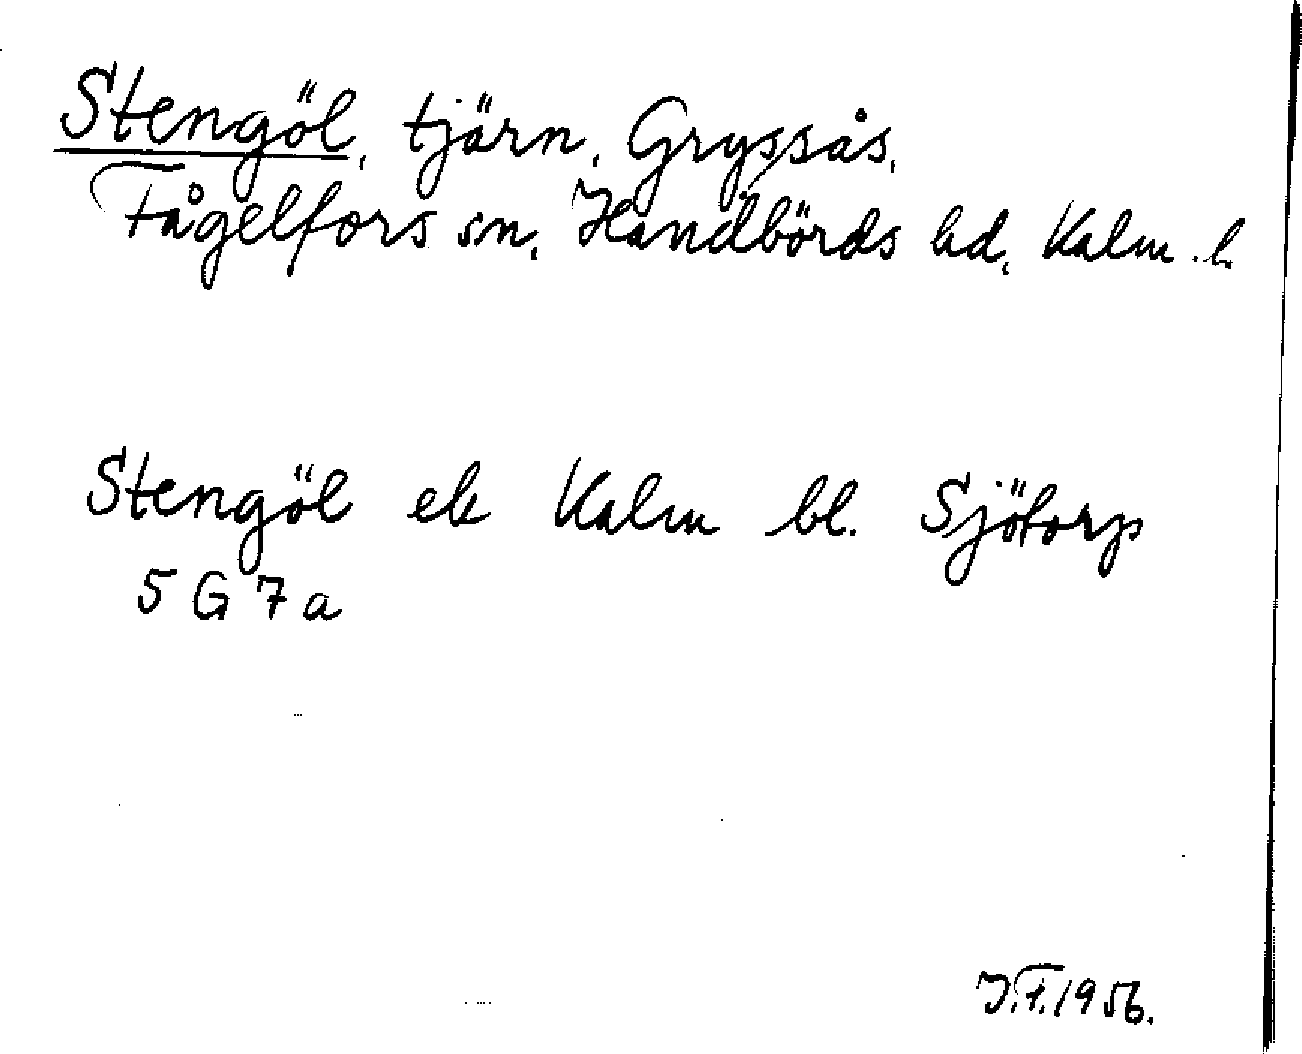 Stengöl, tjärn, Gryssås,
Fågelfors sn, Handbörds hd, Kalm. l.
Stengöl ek Kalm bl. Sjötorp
5 G 7 a
J.F. 1956.